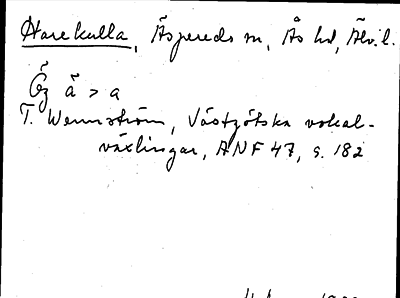 Harekulla, Äspereds sn, Ås hd, Älvsb. l.
Ög ā > a
T. Wennström, Västgötska vokal-
växlingar, ANF 47, s. 182